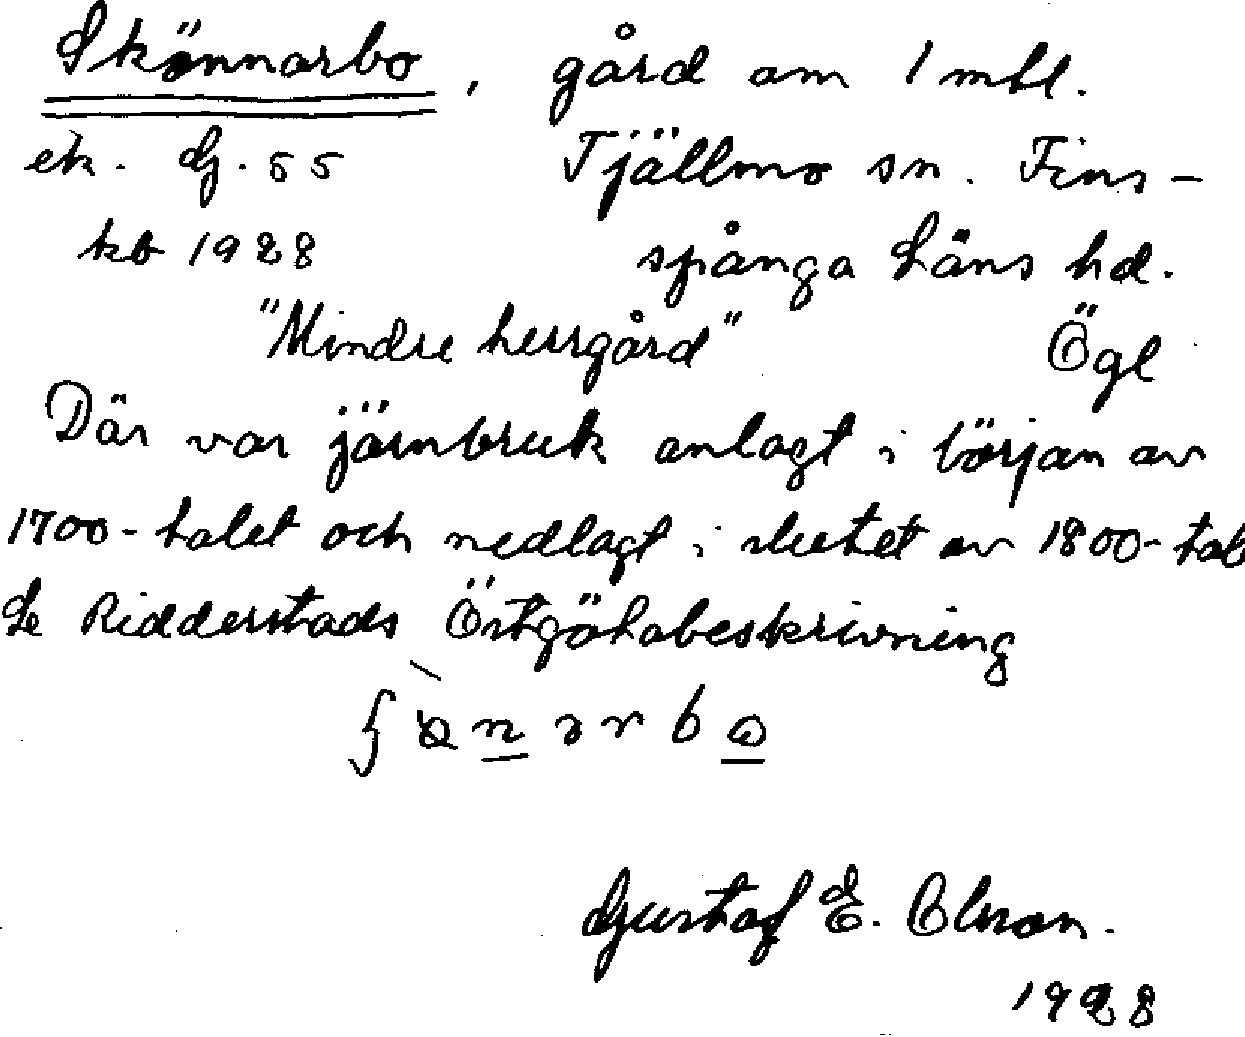 Skönnarbo, gård om 1 mtl.
ek. dj. 55 Tjällmo sn. Fins-
kb 1928 spånga Läns hd.
"Mindre herrgård" Ögl
Där var järnbruk anlagt i början av
1700-talet och nedlagt i slutet av 1800-tal
Se Ridderstads Östgötabeskrivning
Gustaf E. Olson.
1928